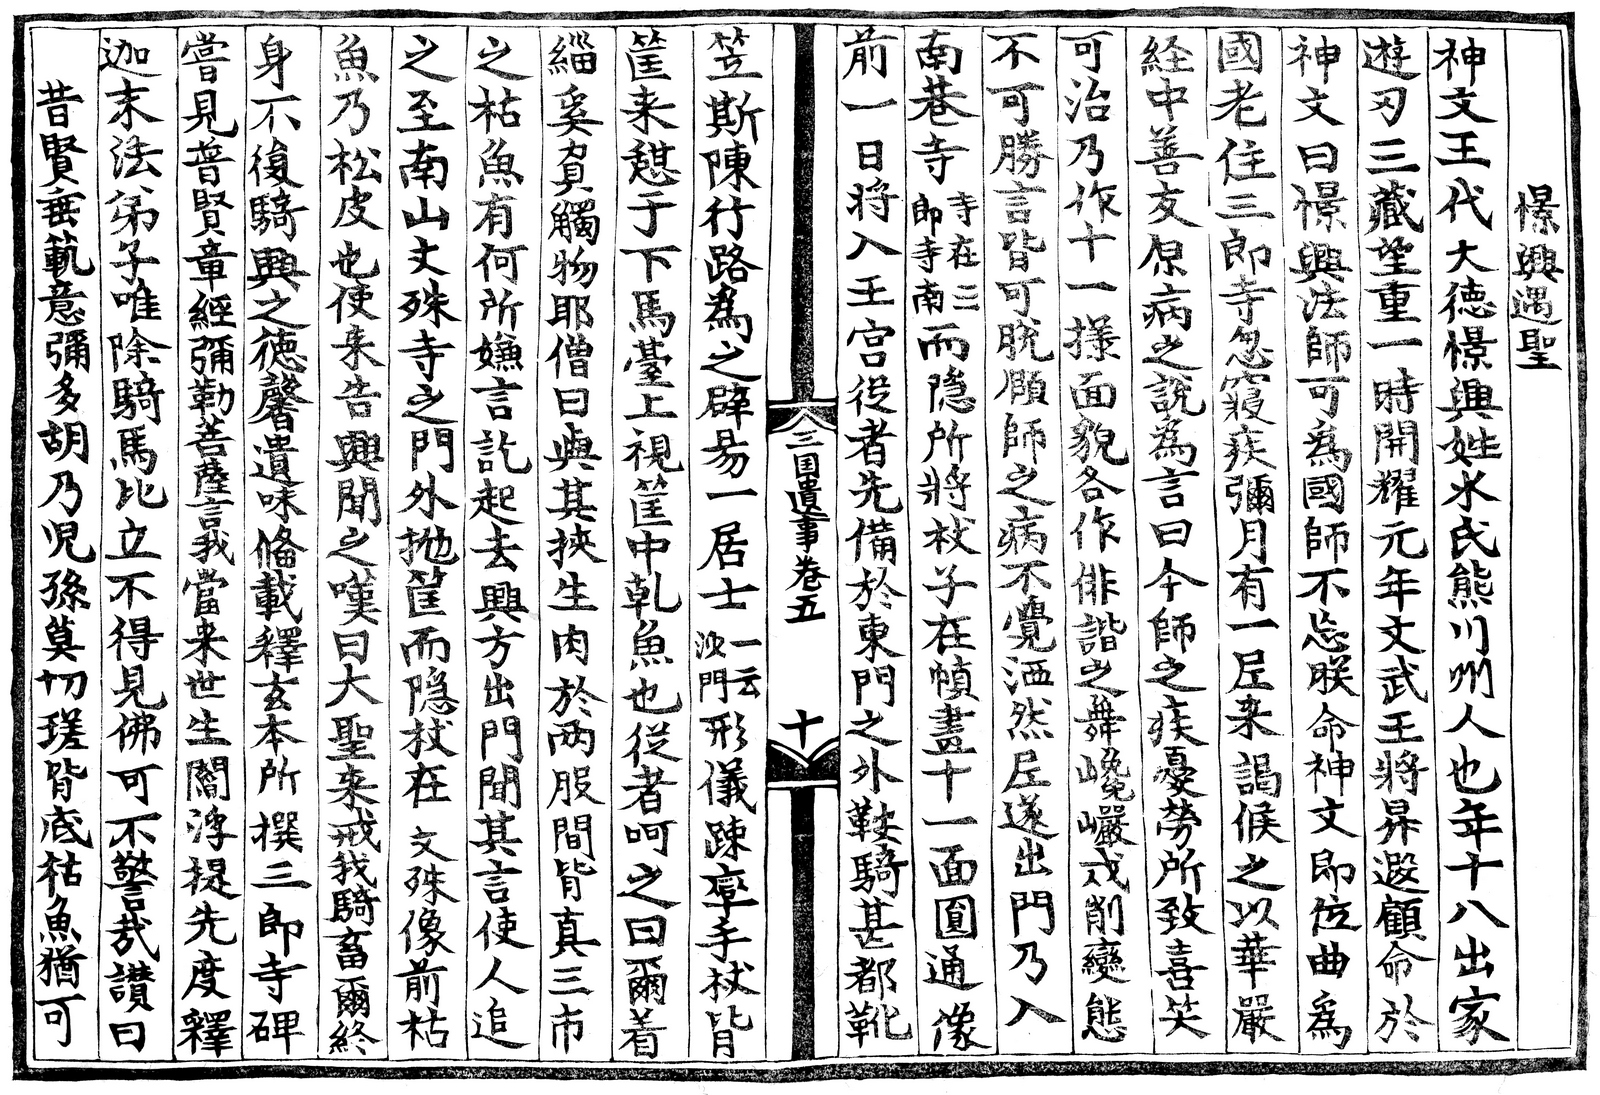 憬興遇聖
神文王代大德憬興姓水氏熊川州人也年十八出家
遊刃三藏望重一時開耀元年文武王將昇遐顧命於
神文曰憬興法師可為國師不忘朕命神文即位曲為
國老住三郎寺忽寢疾彌月有一尼来謁候之以華嚴
経中善友原病之說為言曰今師之疾憂勞所致喜笑
可治乃作十一㨾面貌各作俳諧之舞巉巖戍削變態
不可勝言皆可脫頥師之病不覺洒然尼遂出門乃入
南巷寺寺在三郎寺南而隐所將杖子在幀畫十一面圎通像
前一日將入王宫從者先備於東門之外鞍騎甚都靴
三国遺事巻五
十
笠斯陳行路為之辟易一居士一云沙門形儀踈率手杖背
筐来憇于下馬臺上視筐中乹魚也從者呵之曰爾着
緇奚負觸物耶僧曰與其挾生肉於两股間背真三市
之枯魚有何所嫌言訖起去興方出門聞其言使人追
之至南山文殊寺之門外抛筐而隐杖在文殊像前枯
魚乃松皮也使来告興聞之嘆曰大聖来戒我騎畜爾終
身不復騎興之徳馨遺味俻載釋玄本所撰三郎寺碑
嘗見普賢章經彌勒菩薩言我當来世生閻浮提先度釋
迦末法弟子唯除騎馬比丘不得見佛可不警㢤讃曰
昔賢垂範意彌多胡乃児孫莫切瑳背底枯魚猶可